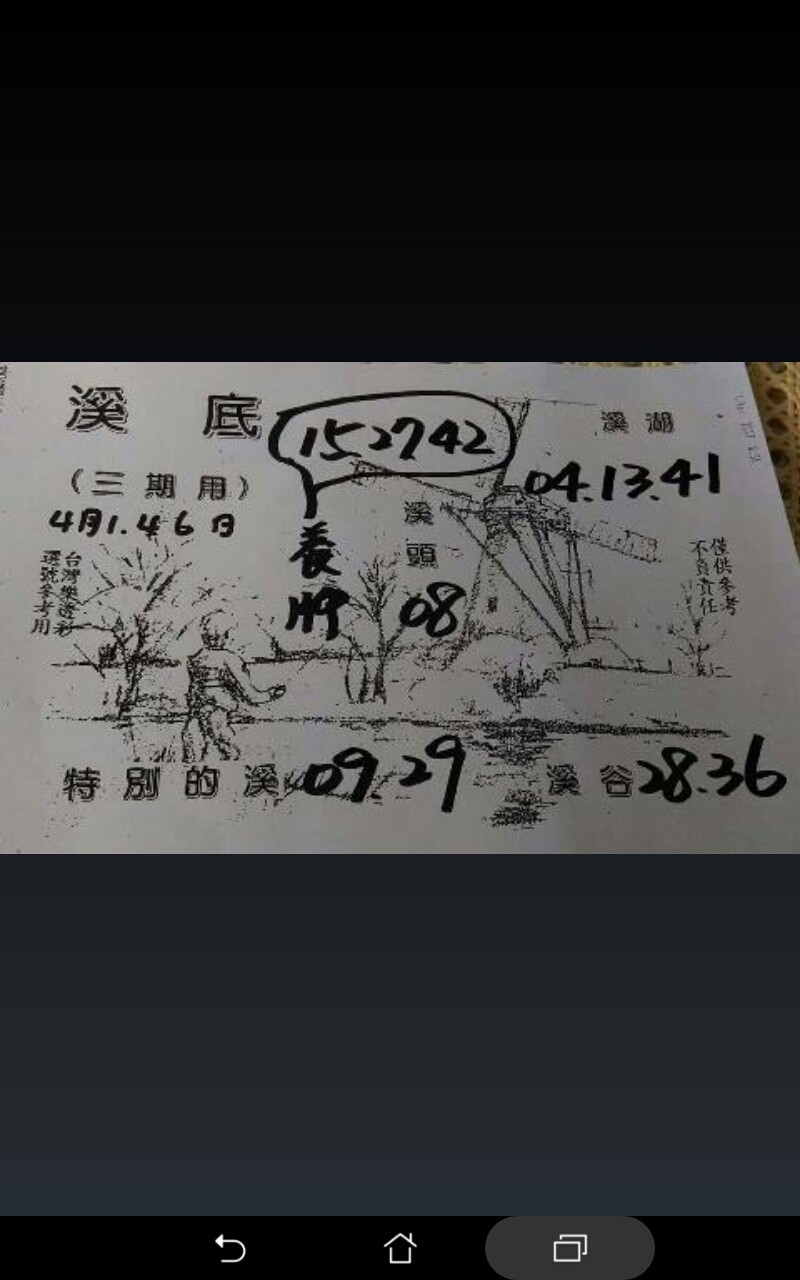 溪 底
152742
溪 湖
04.13.41
（三期用）
4月1.4 6日
養牌
溪頭
08
台灣樂透彩
選號參考用
僅供參考
不負責任
特別的溪
09.29
溪谷
28.36